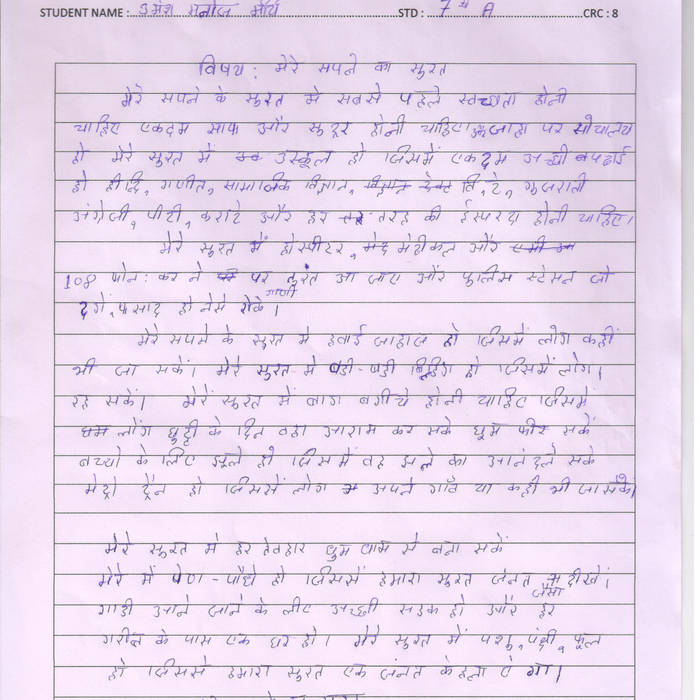 STUDENT NAME : उमेश मनोज मौर्य STD : 7th A CRC : 8
विषय : मेरे सपने का सुरत
मेरे सपने के सुरत मे सबसे पहले स्वच्छता होनी
चाहिए एकदम साफ और सुंदर होनी चाहिए जाहा पर सोचालय
हो मेरे सुरत में उस्कूल हो जिसमें एकदम अच्छी पढाई
हो हींदि, गणीत, सामाजिक विज्ञान, वि, टे, गुजराती
अंग्रेजी, पीटी, कराटे और हर तरह की होनी चाहिए।
मेरे सुरत में होस्पीटर, मेडीकल और
108 फोन : कर ने पर तुरंत आ जाए गाडी और पुलिस स्टेसन जो
दगें, फसाद होनेसे रोके।
मेरे सपने के सुरत मे हवाई जाहाज हो जिसमें लोग कहीं
भी जा सकें। मेरे सुरत मे बडी-बडी बिल्डिंग हो जिसमें लोग।
रह सकें। मेरें सुरत में बाग बगीचे होनी चाहिए जिसमें
लोंग छुट्टी के दिन वहा आराम कर सके घुम फीर सकें
बच्चो के लिए झुले हो जिसमें वह झुले का आनंद ले सके
मेट्रो ट्रैन हो जिससें लोग अपने गाँव या कही भी जा सकें।
मेरे सुरत मे हर तेवहार धुम धाम से बना सकें
मेरे में पेण-पौधे हो जिससें हमारा सुरत जंनत जैसा दीखें।
गाडी आने जाने के लीए अच्छी सडक हो और हर
गरीब के पास एक घर हो। मेरे सुरत में पशु, पंक्षी, फूल
हो जिससे हमारा सुरत एक जंनत केहला ऐ गा।